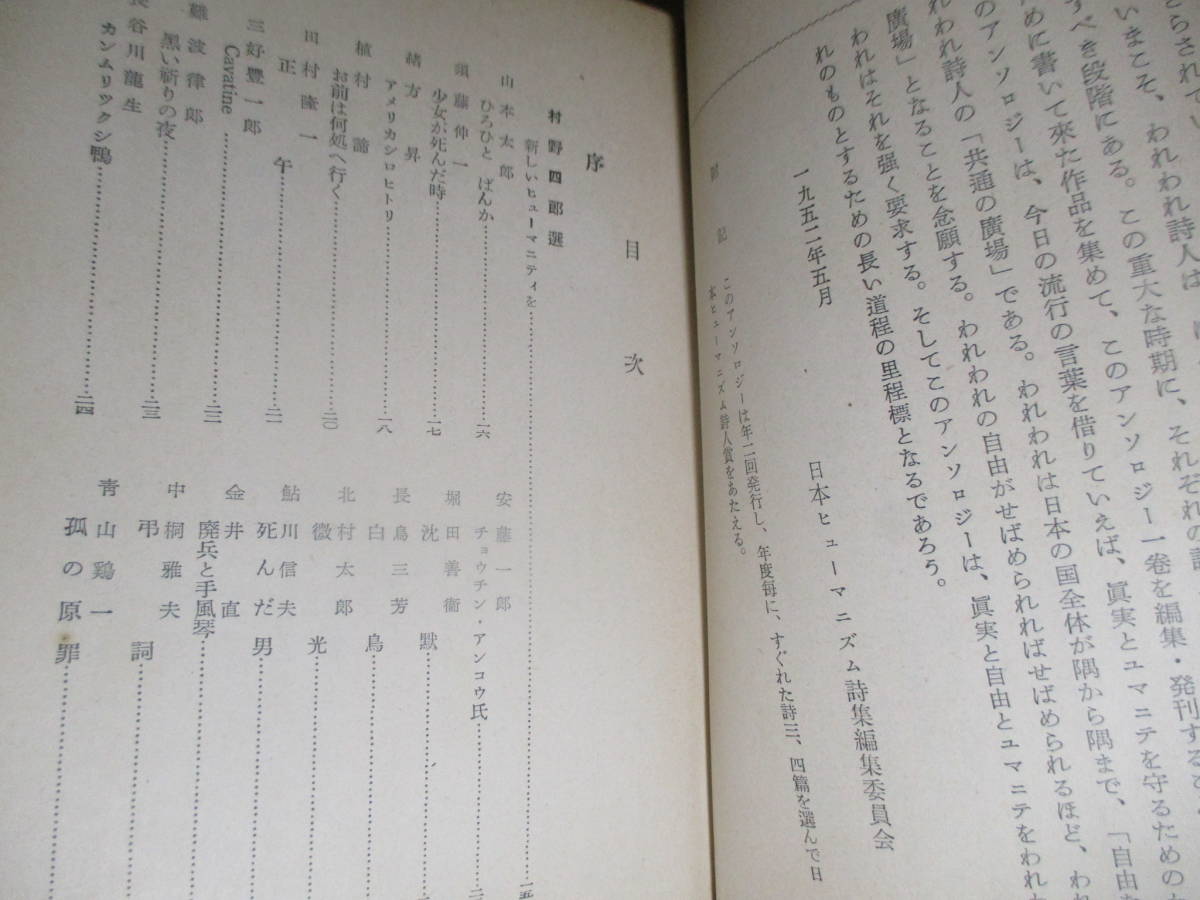 らされてい
いまこそ、われわれ詩人は
すべき段階にある。この重大な時期に、それぞれの
めに書いて来た作品を集めて、このアンソロジー一巻を編集・発刊する
のアンソロジーは、今日の流行の言葉を借りていえば、眞実とユマニテを守るための
われ詩人の「共通の廣場」である。われわれは日本の国全体が隅から隅まで、「自由
廣場」となることを念願する。われわれの自由がせばめられればせばめられるほど、われ
われはそれを强く要求する。そしてこのアンソロジーは、眞実と自由とユマニテをわれわ
れのものとするための長い道程の里程標となるであろう。
一九五二年五月
日本ヒューマニズム詩集編集委員会
附記 このアンソロジーは年二回発行し、年度毎に、すぐれた詩三、四篇を選んで日
本ヒューマニズム詩人賞をあたえる。
目次
序
村野四郎選
新しいヒューマニティを…………一五
山本太郎
ひろひと ばんか…………一六
須藤伸一
少女が死んだ時…………一七
緒方昇
アメリカシロヒトリ…………一八
植村諦
お前は何処へ行く…………二〇
田村隆一
正午…………二一
三好豊一郎
Cavatine…………二二
難波律郎
黒い祈りの夜…………二三
長谷川龍生
カンムリツクシ鴨…………二四
安藤一郎
チョウチン・アンコウ氏…………二
堀田善衞
沈默…………
長島三芳
白鳥…………
北村太郎
微光…………
鮎川信夫
死んだ男…………
金井直
廃兵と手風琴…………
中桐雅夫
弔詞…………
青山鶏一
孤の原罪…………